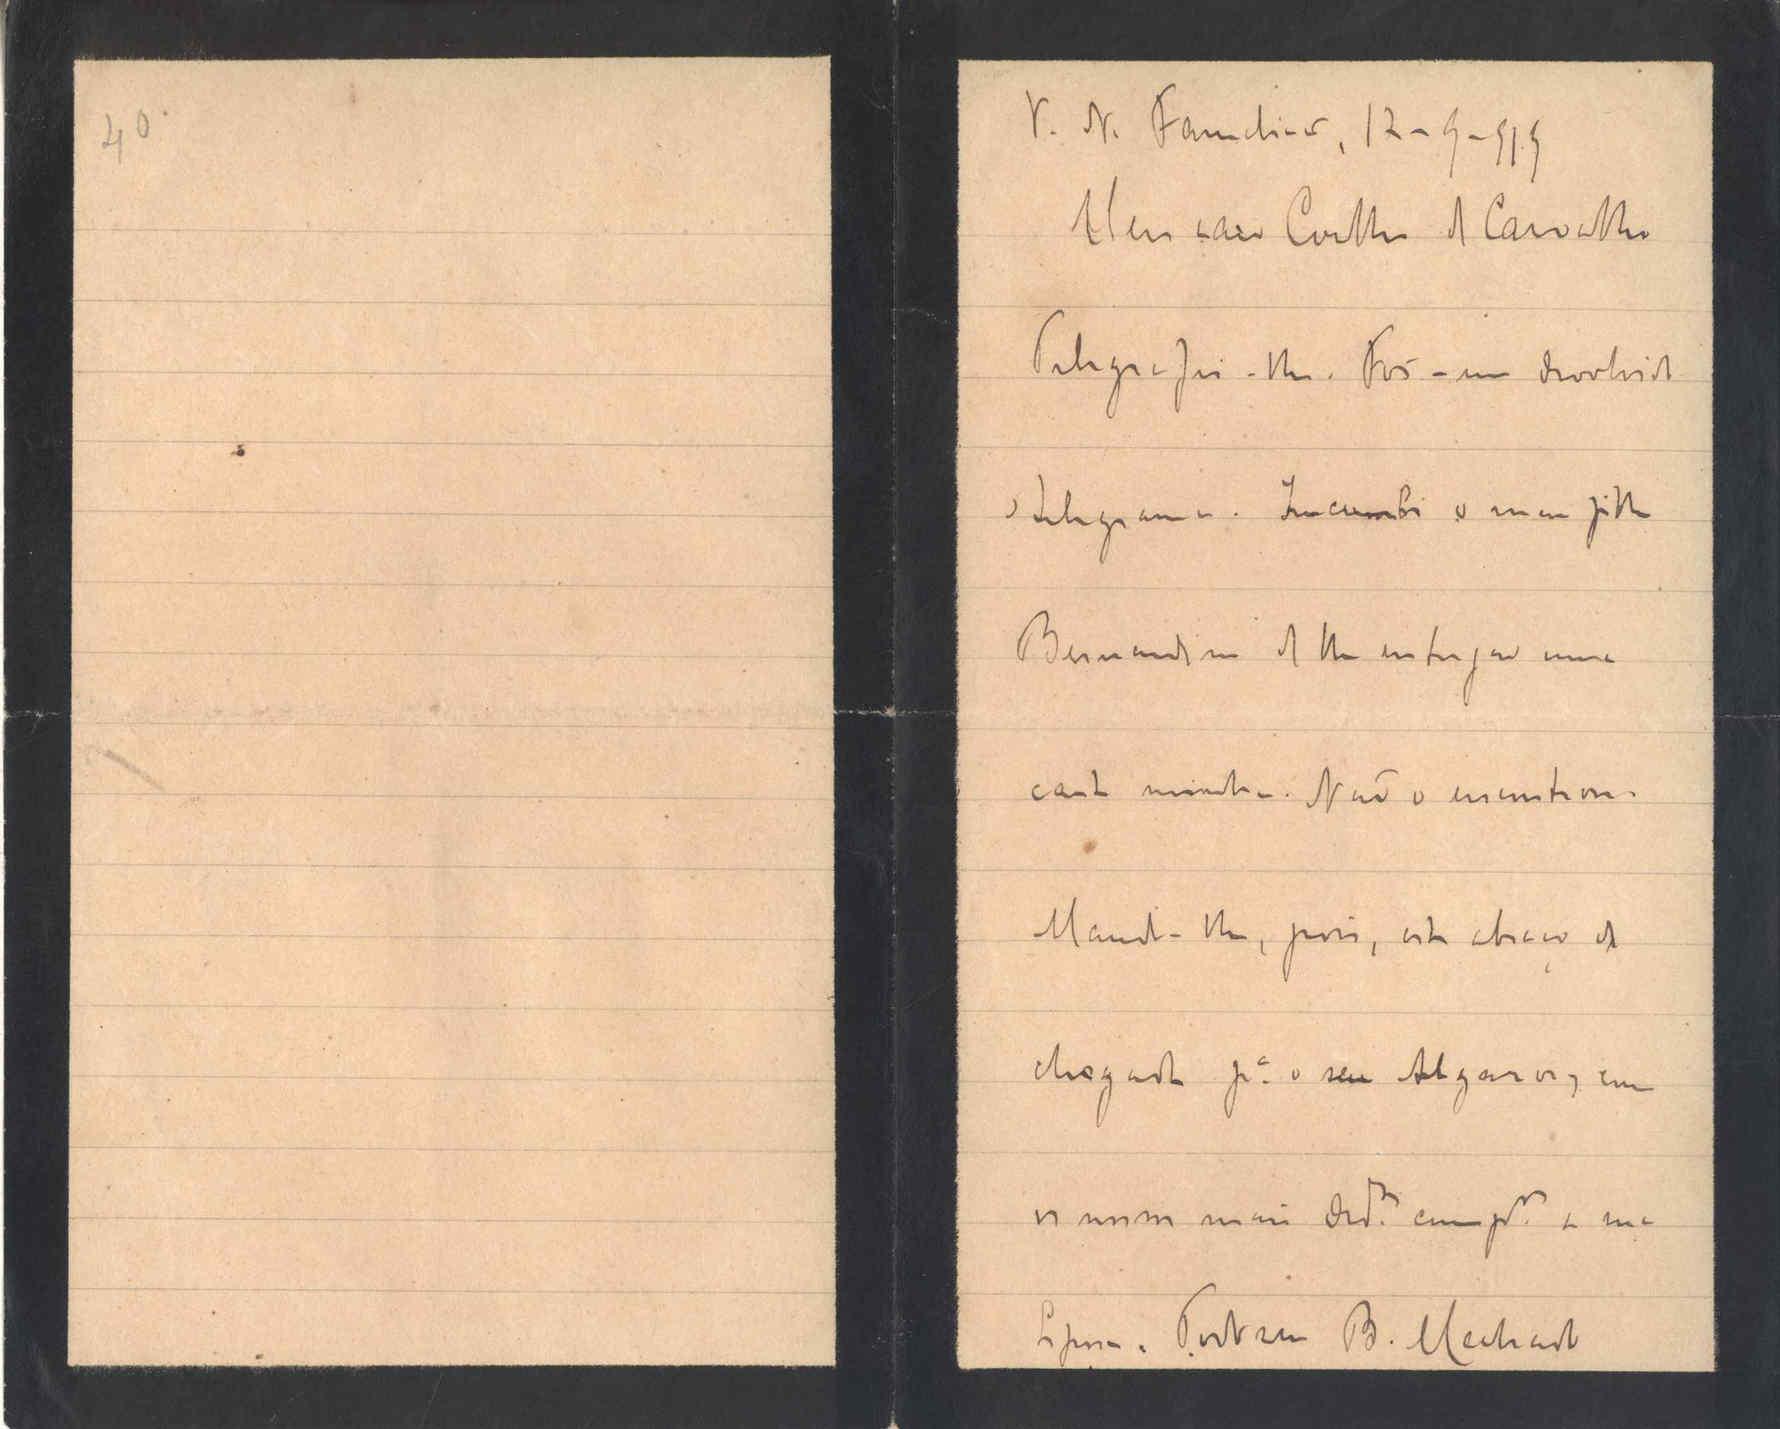 40
V. N. Famalicão, 12-9-919
Meu caro Coelho de Carvalho
Telegrafei-lhe. Foi-me devolvido
o telegrama. Incumbi o meu filho
Bernardino de lhe entregar uma
carta minha. Não o encontrou.
Mando-lhe, pois, este abraço de
chegada pª o seu Algarve, com
os nossos mais
Esposa. Todo seu B. Machado